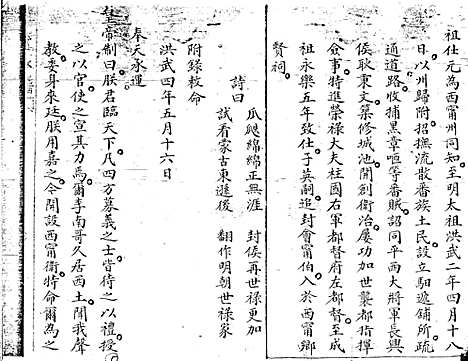 祖仕元為西甯州同知至明太祖洪武二年四月十八
日以州歸附招撫流散番族土民設立馹遞鋪所疏
通道路收捕黑章咂等番賊詔同平西大將軍長興
侯耿東文築修城池開創衛治屢功加世襲都指揮
僉事特進榮禄大夫柱國右軍都督府左都督至成
祖永樂五年致仕子英嗣追封會甯伯入於西甯鄉
賢祠
詩曰
瓜瓞綿綿正無涯 封侯再世禄更加
試看蒙古東遁後 翻作明朝世禄家
附錄敕命
洪武四年五月十六日
奉天承運
皇帝制曰朕君臨天下凡四方慕義之士皆待之以禮授
之以官使之宣其力焉爾李南哥久居西土聞我聲
教委身來廷朕用嘉之今開設西甯衛特命爾為之